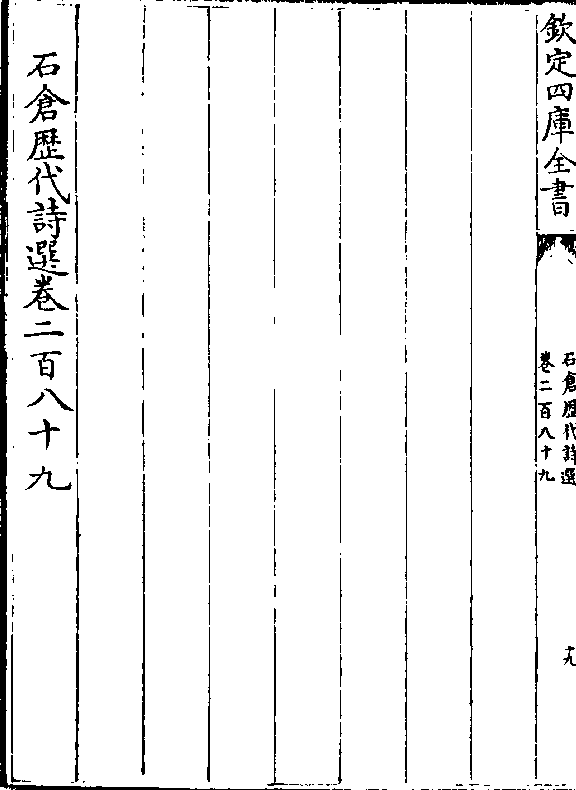 欽定四庫全書
石倉歷代詩選
卷二百八十九
十九
石倉歷代詩選卷二百八十九